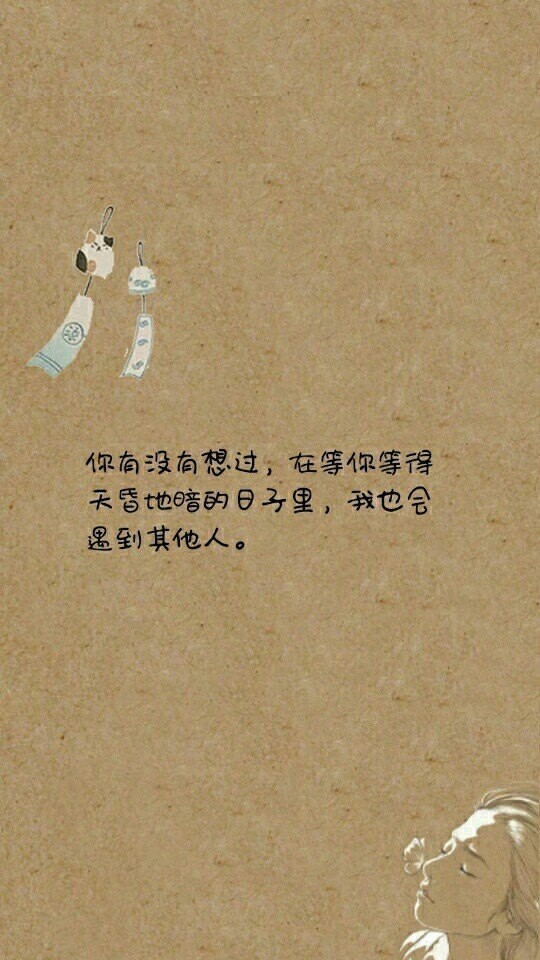 你有没有想过，在等你等得
天昏地暗的日子里，我也会
遇到其他人。